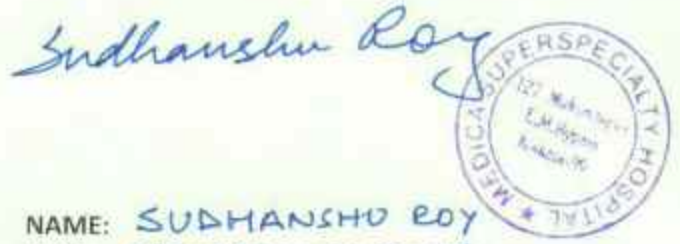 Sudhanshu Roy
MEDICA SUPERSPECIALTY HOSPITAL ★
127 Mukundapur
E.M.Bypass
NAME: SUDHANSHU ROY